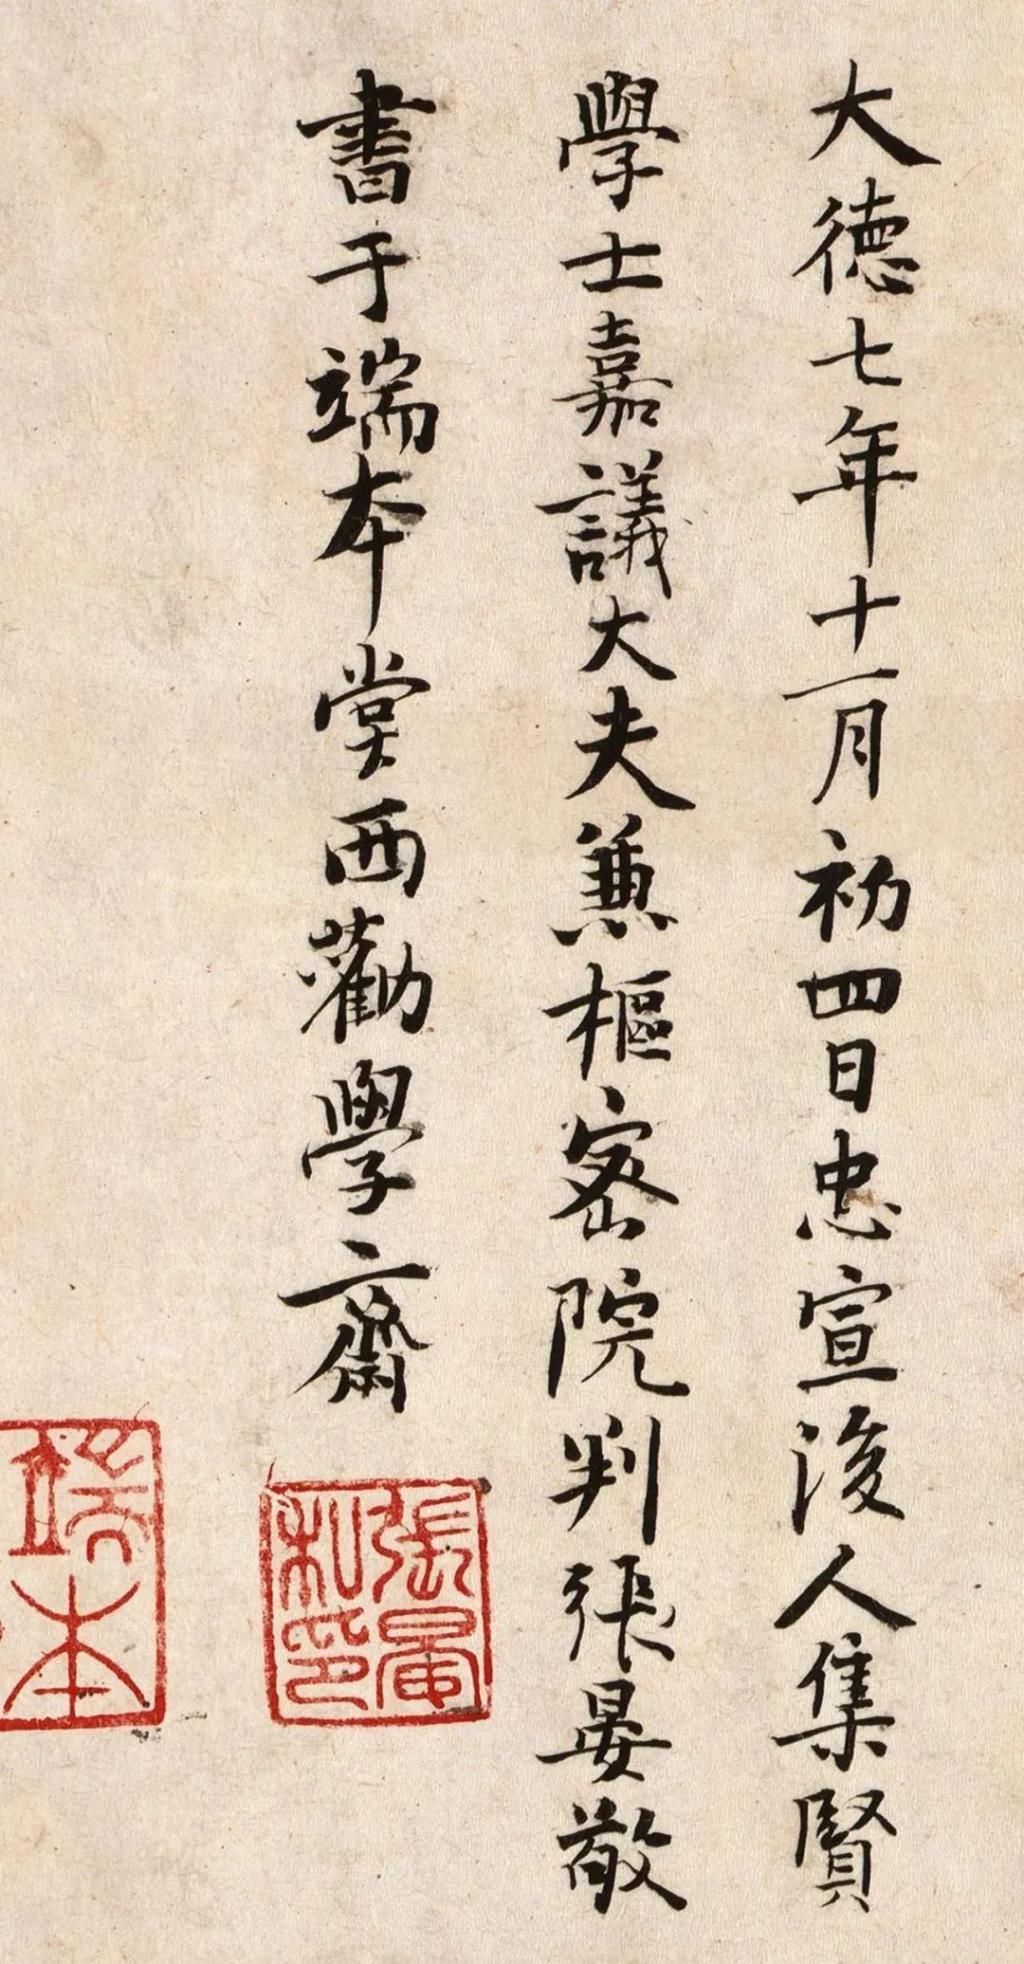 大德七年十一月初四日忠宣後人集賢
學士嘉議大夫兼樞密院判張晏敬
書于端本堂西勸學齋
張晏私印
端本